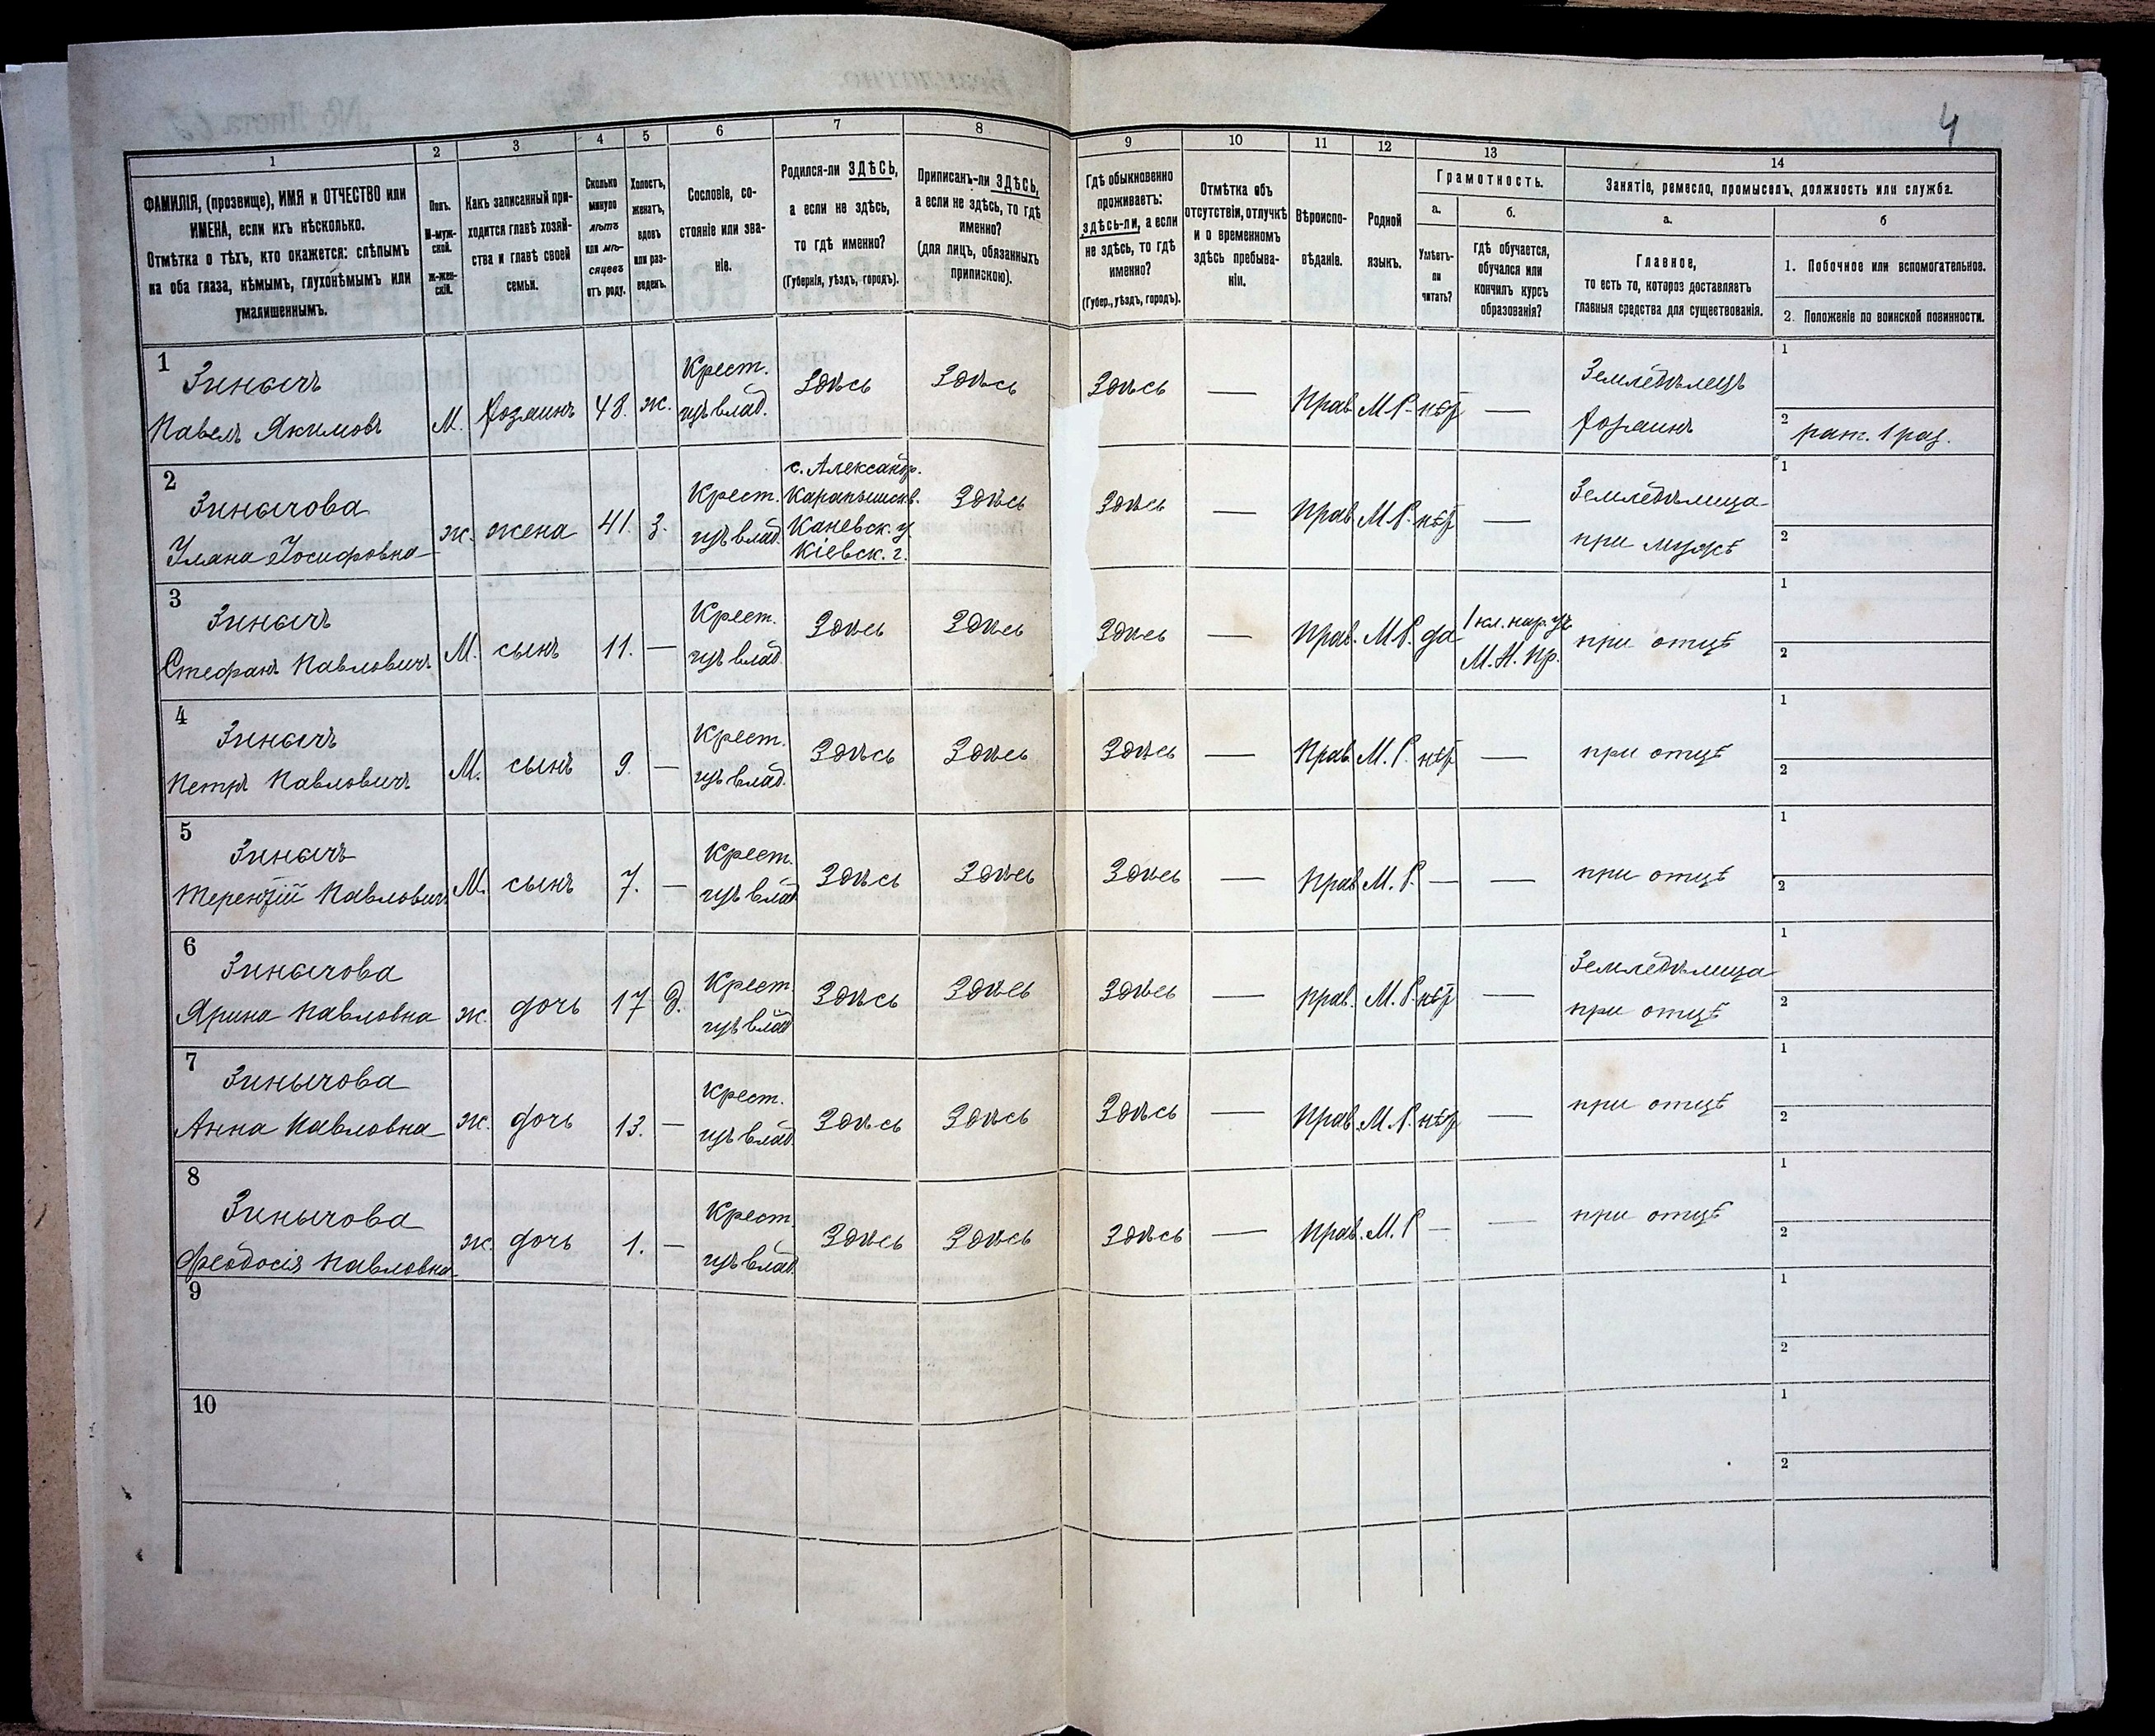 4
1
2
3
4
5
6
7
8
9
10
11
12
13
14
ФАМИЛІЯ, (прозвище), ИМЯ и ОТЧЕСТВО или
ИМЕНА, если ихъ нѣсколько.
Отмѣтка о тѣхъ, кто окажется: слѣпымъ
на оба глаза, нѣмымъ, глухонѣмымъ или
умалишеннымъ.
Полъ.
М-муж-
ской.
Ж-жен-
скій.
Какъ записанный при-
ходится главѣ хозяй-
ства и главѣ своей
семьи.
Сколько
минуло
лѣтъ
или мѣ-
сяцевъ
отъ роду.
Холостъ,
женатъ,
вдовъ
или раз-
веденъ.
Сословіе, со-
стояніе или зва-
ніе.
Родился-ли ЗДѢСЬ,
а если не здѣсь,
то гдѣ именно?
(Губернія, уѣздъ, городъ).
Приписанъ-ли ЗДѢСЬ,
а если не здѣсь, то гдѣ
именно?
(для лицъ, обязанныхъ
припискою).
Гдѣ обыкновенно
проживаетъ:
здѣсь-ли, а если
не здѣсь, то гдѣ
именно?
(Губер., уѣздъ, городъ).
Отмѣтка объ
отсутствіи, отлучкѣ
и о временномъ
здѣсь пребыва-
ніи.
Вѣроиспо-
вѣданіе.
Родной
языкъ.
Грамотность.
а.
Умѣетъ-
ли
читать?
б.
гдѣ обучается,
обучался или
кончилъ курсъ
образованія?
Занятіе, ремесло, промыселъ, должность или служба.
а.
Главное,
то есть то, которое доставляетъ
главныя средства для существованія.
б
1. Побочное или вспомогательное.
2. Положеніе по воинской повинности.
1
Зинычъ
Павелъ Якимовъ
М.
Хозяинъ
48.
ж.
Крест.
изъ влад.
Здѣсь
Здѣсь
Здѣсь
—
Прав.
М.Р.
нѣт
—
Земледѣлецъ
Хозяинъ
1
2
рат. 1 раз.
2
Зинычова
Улана Іосифовна
ж.
жена
41.
З.
Крест.
изъ влад.
с. Александр.
Карапышев.
Каневск. у.
Кіевск. г.
Здѣсь
Здѣсь
—
Прав.
М.Р.
нѣт
—
Земледѣлица
при мужѣ
1
2
3
Зинычъ
Стефанъ Павловичъ
М.
сынъ
11.
—
Крест.
изъ влад.
Здѣсь
Здѣсь
Здѣсь
—
Прав.
М.Р.
да
1 кл. нар. уч.
М. Н. Пр.
при отцѣ
1
2
4
Зинычъ
Петръ Павловичъ
М.
сынъ
9.
—
Крест.
изъ влад.
Здѣсь
Здѣсь
Здѣсь
—
Прав.
М.Р.
нѣт
—
при отцѣ
1
2
5
Зинычъ
Терентій Павловичъ
М.
сынъ
7.
—
Крест.
изъ влад
Здѣсь
Здѣсь
Здѣсь
—
Прав.
М.Р.
—
—
при отцѣ
1
2
6
Зинычова
Ярина Павловна
ж.
дочь
17
Д.
Крест.
изъ влад
Здѣсь
Здѣсь
Здѣсь
—
прав.
М.Р.
нѣт
—
Земледѣлица
при отцѣ
1
2
7
Зинычова
Анна Павловна
ж.
дочь
13.
—
Крест.
изъ влад.
Здѣсь
Здѣсь
Здѣсь
—
Прав.
М.Р.
нѣт
—
при отцѣ
1
2
8
Зинычова
Феодосія Павловна
ж.
дочь
1.
—
Крест.
изъ влад.
Здѣсь
Здѣсь
Здѣсь
—
Прав.
М.Р
—
—
при отцѣ
1
2
9
1
2
10
1
2